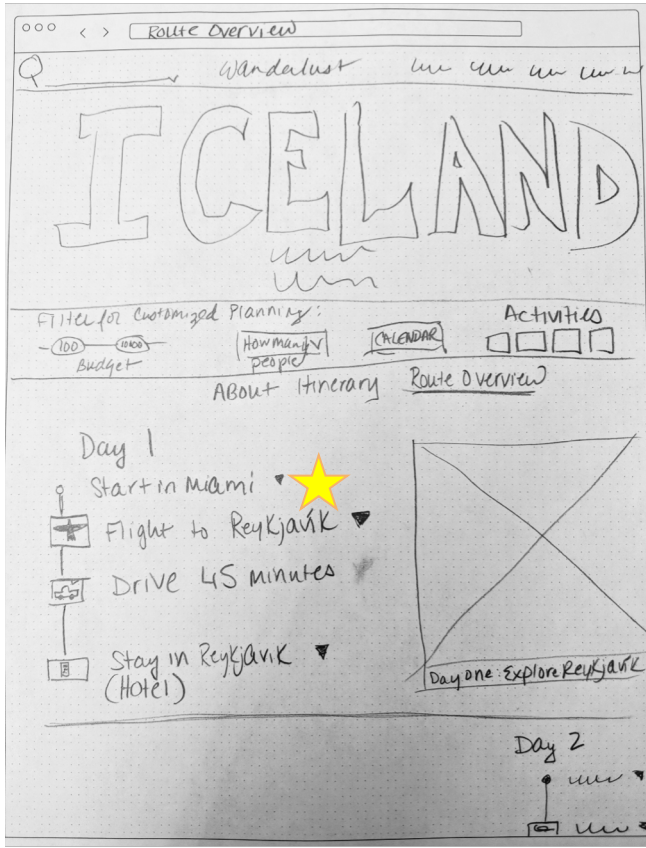 Route Overview
Wanderlust
ICELAND
Filter for Customized Planning:
Activities
100
10100
Budget
How many
people
CALENDAR
About Itinerary Route Overview
Day 1
Start in Miami
Flight to Reykjavík
Drive 45 minutes
Stay in Reykjavik
(Hotel)
Day one: Explore Reykjavík
Day 2